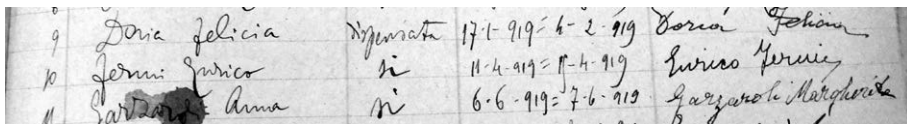 9 Doria Felicia dispensata 17-1-919= 6-2-919 Doria Felicia
10 Fermi Enrico si 11-4-919= 11-4-919 Enrico Fermi
11 Garzaroli Anna si 6-6-919= 7-6-919 Garzaroli Margherita